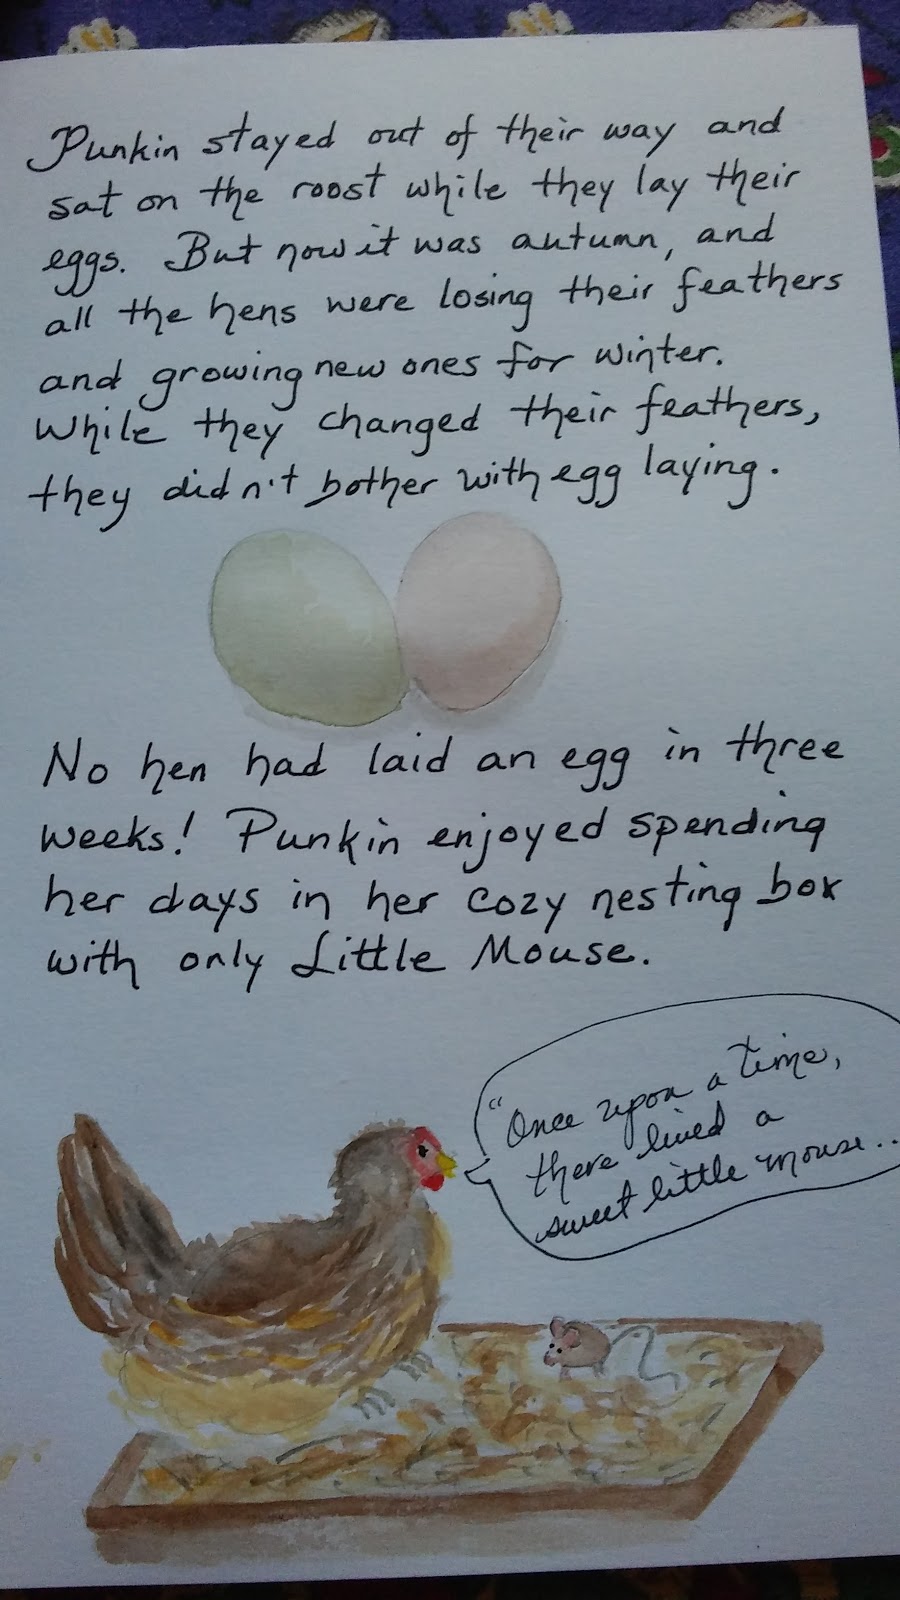 Punkin stayed out of their way and
sat on the roost while they lay their
eggs. But now it was autumn, and
all the hens were losing their feathers
and growing new ones for winter.
While they changed their feathers,
they didn't bother with egg laying.
No hen had laid an egg in three
weeks! Punkin enjoyed spending
her days in her cozy nesting box
with only Little Mouse.
"Once upon a time,
there lived a
sweet little mouse...